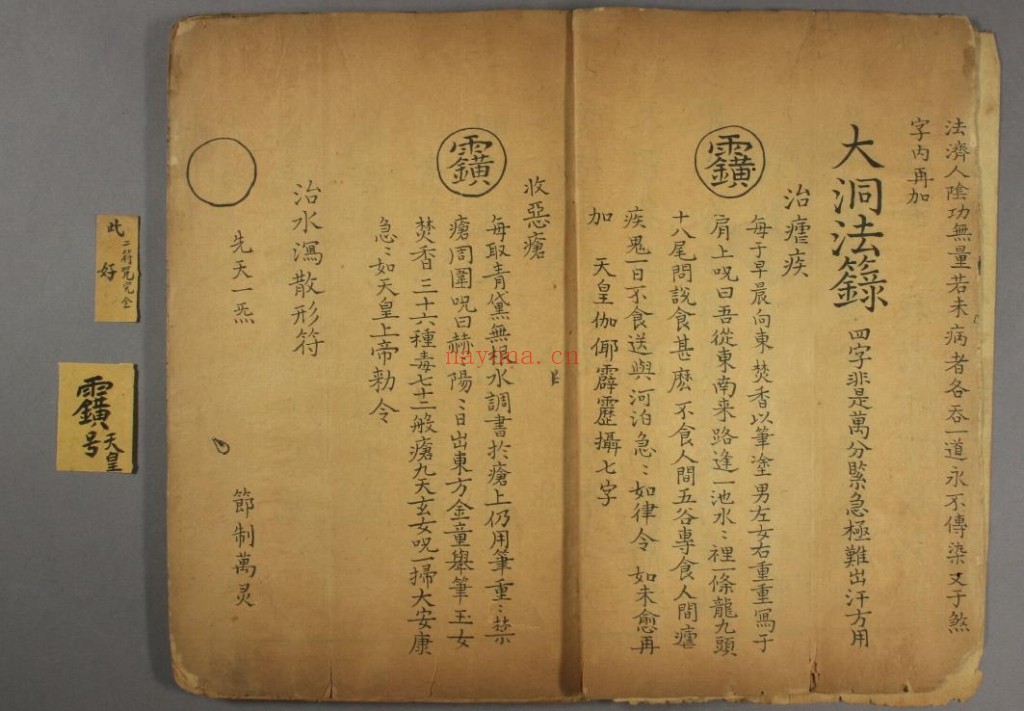 法濟人陰功無量若未病者各吞一道永不傳染又于煞
字內再加
大洞法籙 四字非是萬分緊急極難出汗方用
治瘧疾
每于早晨向東焚香以筆塗男左女右重重寫于
肩上咒曰吾從東南来路逢一池水〻裡一條龍九頭
十八尾問說食甚麽不食人間五谷專食人間瘧
疾鬼一日不食送與河泊急〻如律令 如未愈再
加 天皇伽倻霹靂攝七字
收惡瘡
每取青黛無根水調書於瘡上仍用筆重〻禁
瘡周圍咒曰赫〻陽〻日出東方金童舉筆玉女
焚香三十六種毒七十二般瘡九天玄女咒一掃大安康
急〻如天皇上帝勅令
治水瀉散形符
先天一炁 節制萬灵
此二符咒完全
好
天皇
号
nayima.cn